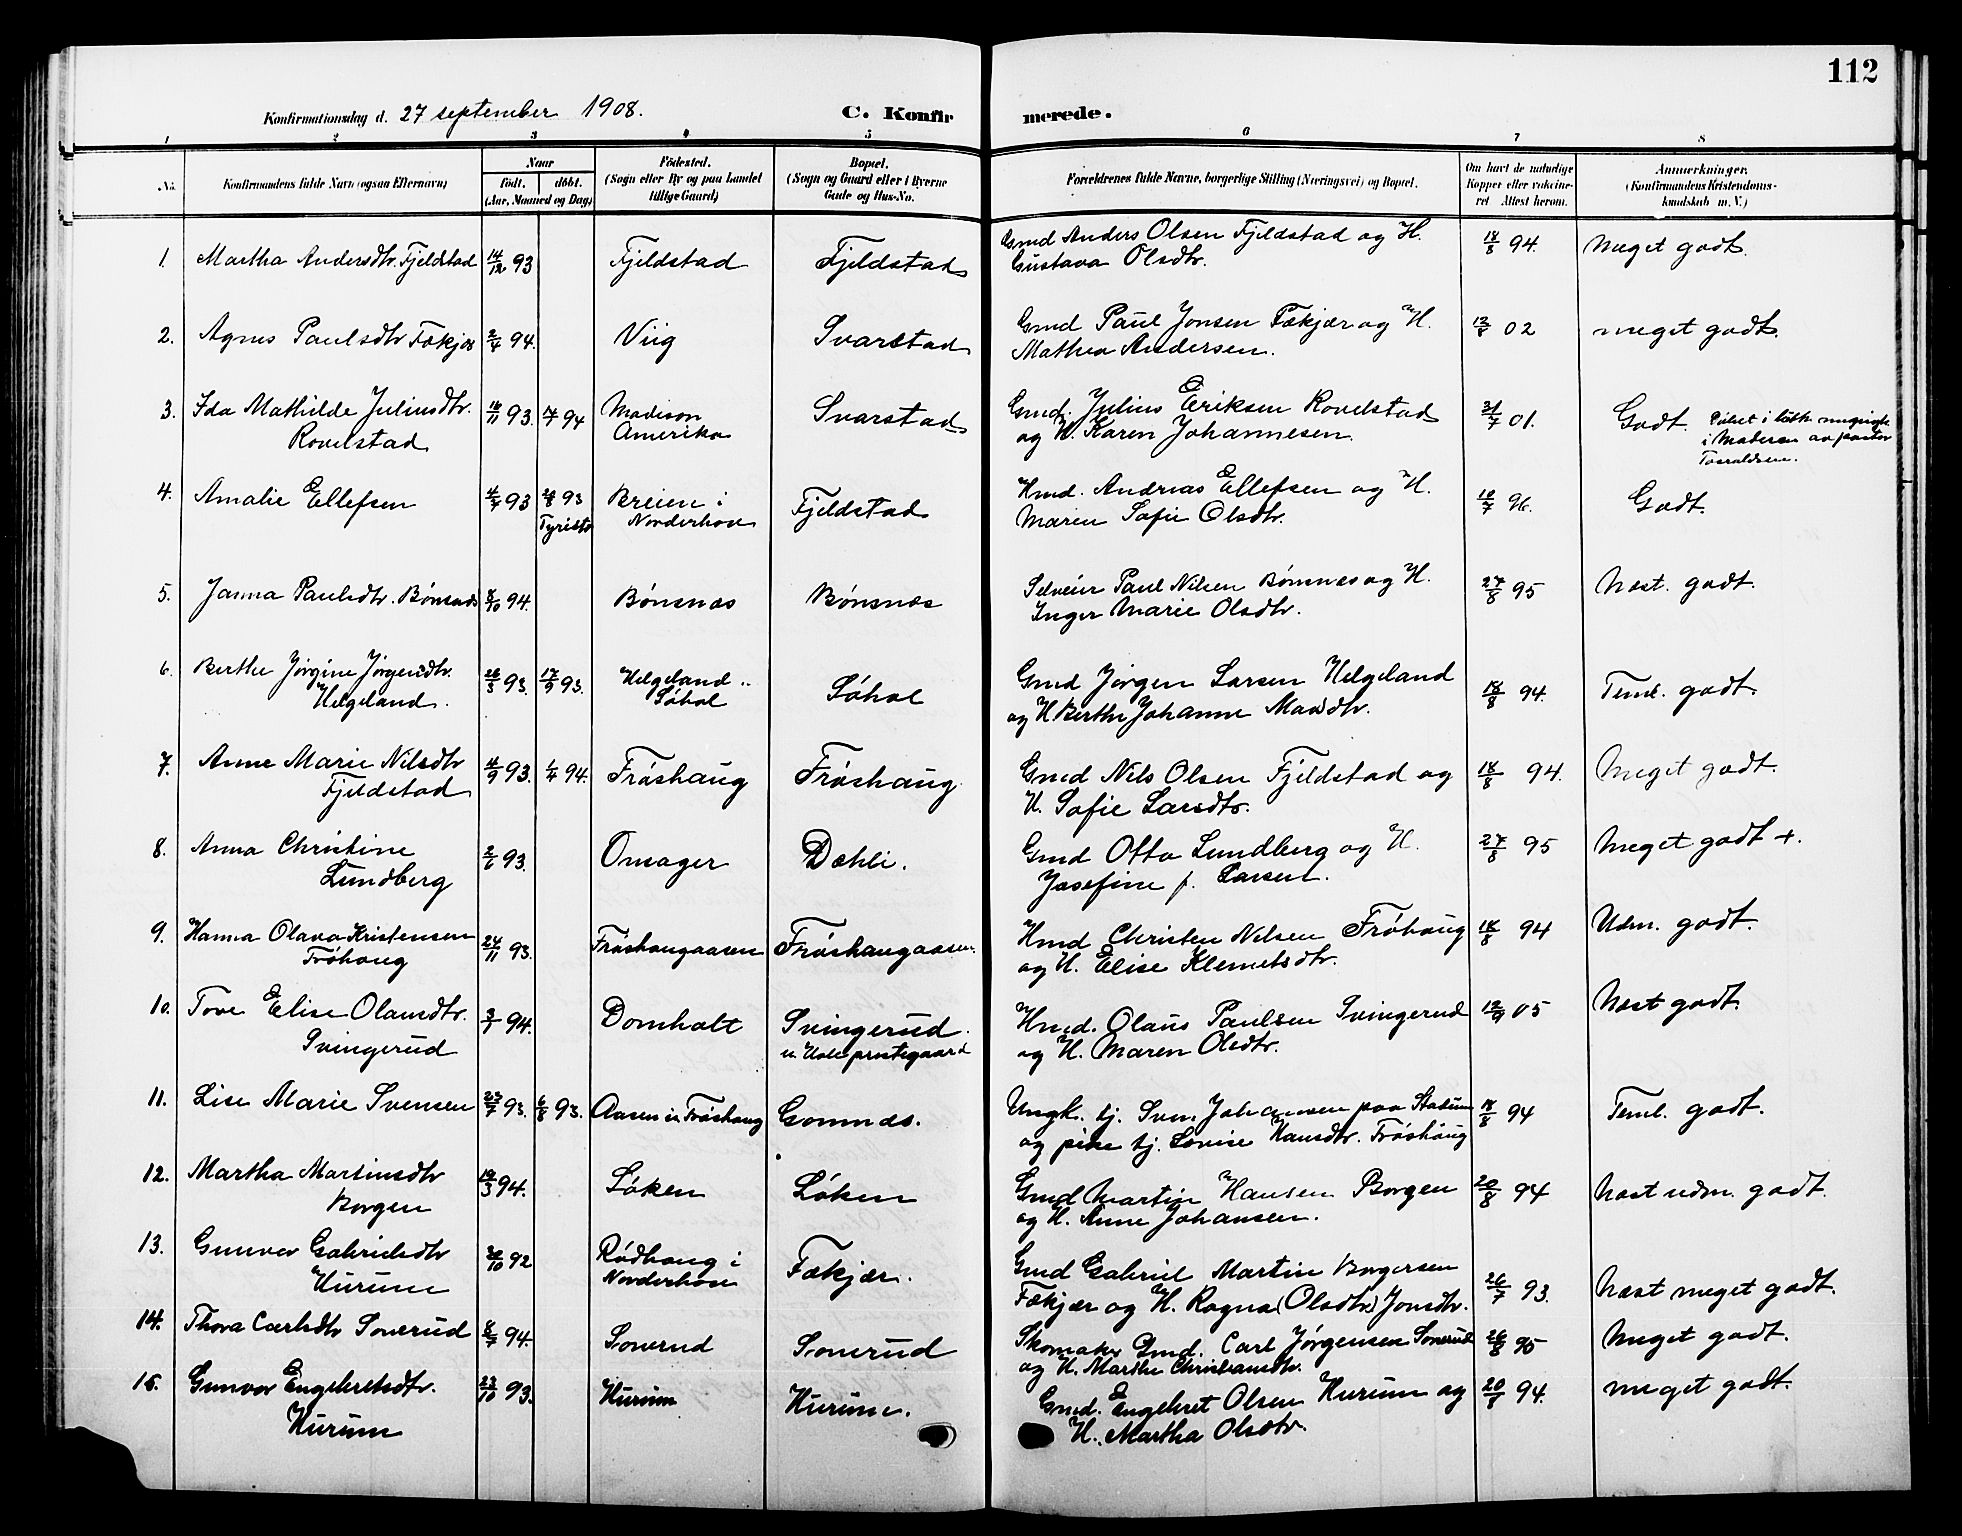 112
Konfirmationsdag d. 27 september 1908.
C. Konfirmerede.
1 2 3 4 5 6 7 8
No. Konfirmandens fulde Navn (ogsaa Efternavn) Naar født. døbt. (Aar, Maaned og Dag) Födested. (Sogn eller By og paa Landet tillige Gaard) Bopæl. (Sogn og Gaard eller i Byerne Gade og Hus-No. Forældrenes fulde Navne, borgerlige Stilling (Næringsvei) og Bopæl. Om havt de naturlige Kopper eller vakcineret Attest herom. Anmerkninger. (Konfirmandens Kristendomskundskab m. V.)
1. Martha Andersdtr. Fjeldstad 14/12 93 Fjeldstad Fjeldstad Gmd Anders Olsen Fjeldstad og H. 18/8 94. Meget godt.
Gustava Olsdtr.
2. Agnes Paulsdtr Fækjær 2/4 94. Viig Svarstad Gmd Paul Jonsen Fækjær og H. 02 meget godt.
Mathea Andersen.
3. Ida Mathilde Juliusdtr. 16/11 93. 94 Madison Svarstad Gmd. Julius Eriksen Rovelstad 01. Godt.
Rovelstad Amerika og H. Karen Johannesen. i av pastor
4. Amalie Ellefsen 93 93 Breien i Fjeldstad Hmd. Andreas Ellefsen og H. 96. Godt.
Norderhov Maren Sofie Olsdtr.
5. Janna Paulsdtr. Bönsnæs 8/10 94. Bönsnæs Bönsnæs Selveier Paul Nilsen Bönsnæs og H. 27/8 95 Næst. godt.
Inger Marie Olsdtr.
6. Berthe Jörgine Jörgensdtr. 26/3 93. 17/9 93. Helgeland Söhol Gmd Jörgen Larsen Helgeland 18/8 94. Teml. godt.
Helgeland. Söhol og H. Berthe Johanne
7. Anne Marie Nilsdtr 93. 1/4 94. Fröshaug Fröshaug Gmd Nils Olsen Fjeldstad og 18/8 94. Meget godt.
Fjeldstad H. Sofie Larsdtr.
8. Anna Christine 2/6 93. Onsager Dæhli. Gmd Otto Lundberg og H. 27/8 95 Meget godt +.
Lundberg Josefine f. Larsen.
9. Hanna Olava Kristensen 24/11 93. Fröshaugaasen Fröshaugaasen. Hmd Christen Nilsen Fröhaug 18/8 94 Udm. godt.
Fröhaug og H. Elise Klemetsdtr.
10. Tove Elise Olausdtr. 94. Domholt Svingerud. Hmd. Olaus Paulsen Svingerud 12/9 05 Næst godt.
Svingerud u. Hole prestegaard og H. Maren Olsdtr.
11. Lise Marie Svensen 23/7 93. 6/8 93. Aasen u. Fröshaug Gomnæs. Ungk. tj. Sven Johansen paa 18/8 94 Teml. godt.
og pike tj. Lovise Hansdtr. Fröshaug
12. Martha Martinsdtr 19/3 94. Löken Löken Gmd Martin Hansen Borgen 20/8 94 Næst udm. godt.
Borgen og H. Anne Johansen.
13. Gunvor Gabrielsdtr 92 Rödhaug i Fækjær. Gmd Gabriel Martin Borgersen 26/7 93. Næst meget godt.
Hurum Norderhov Fækjær og H. Ragna (Olsdtr) Jonsdtr.
14. Thora Carlsdtr Sonerud 94. Sonerud Sonerud Skomaker Gmd. Carl Jörgensen Sonerud 26/8 95 Meget godt.
og H. Marthe Christiansdtr.
15. Gunvor Engebretsdtr. 23/10 93. Hurum Hurum. Gmd. Engebret Olsen Hurum og 20/8 94. meget godt.
Hurum H. Martha Olsdtr.